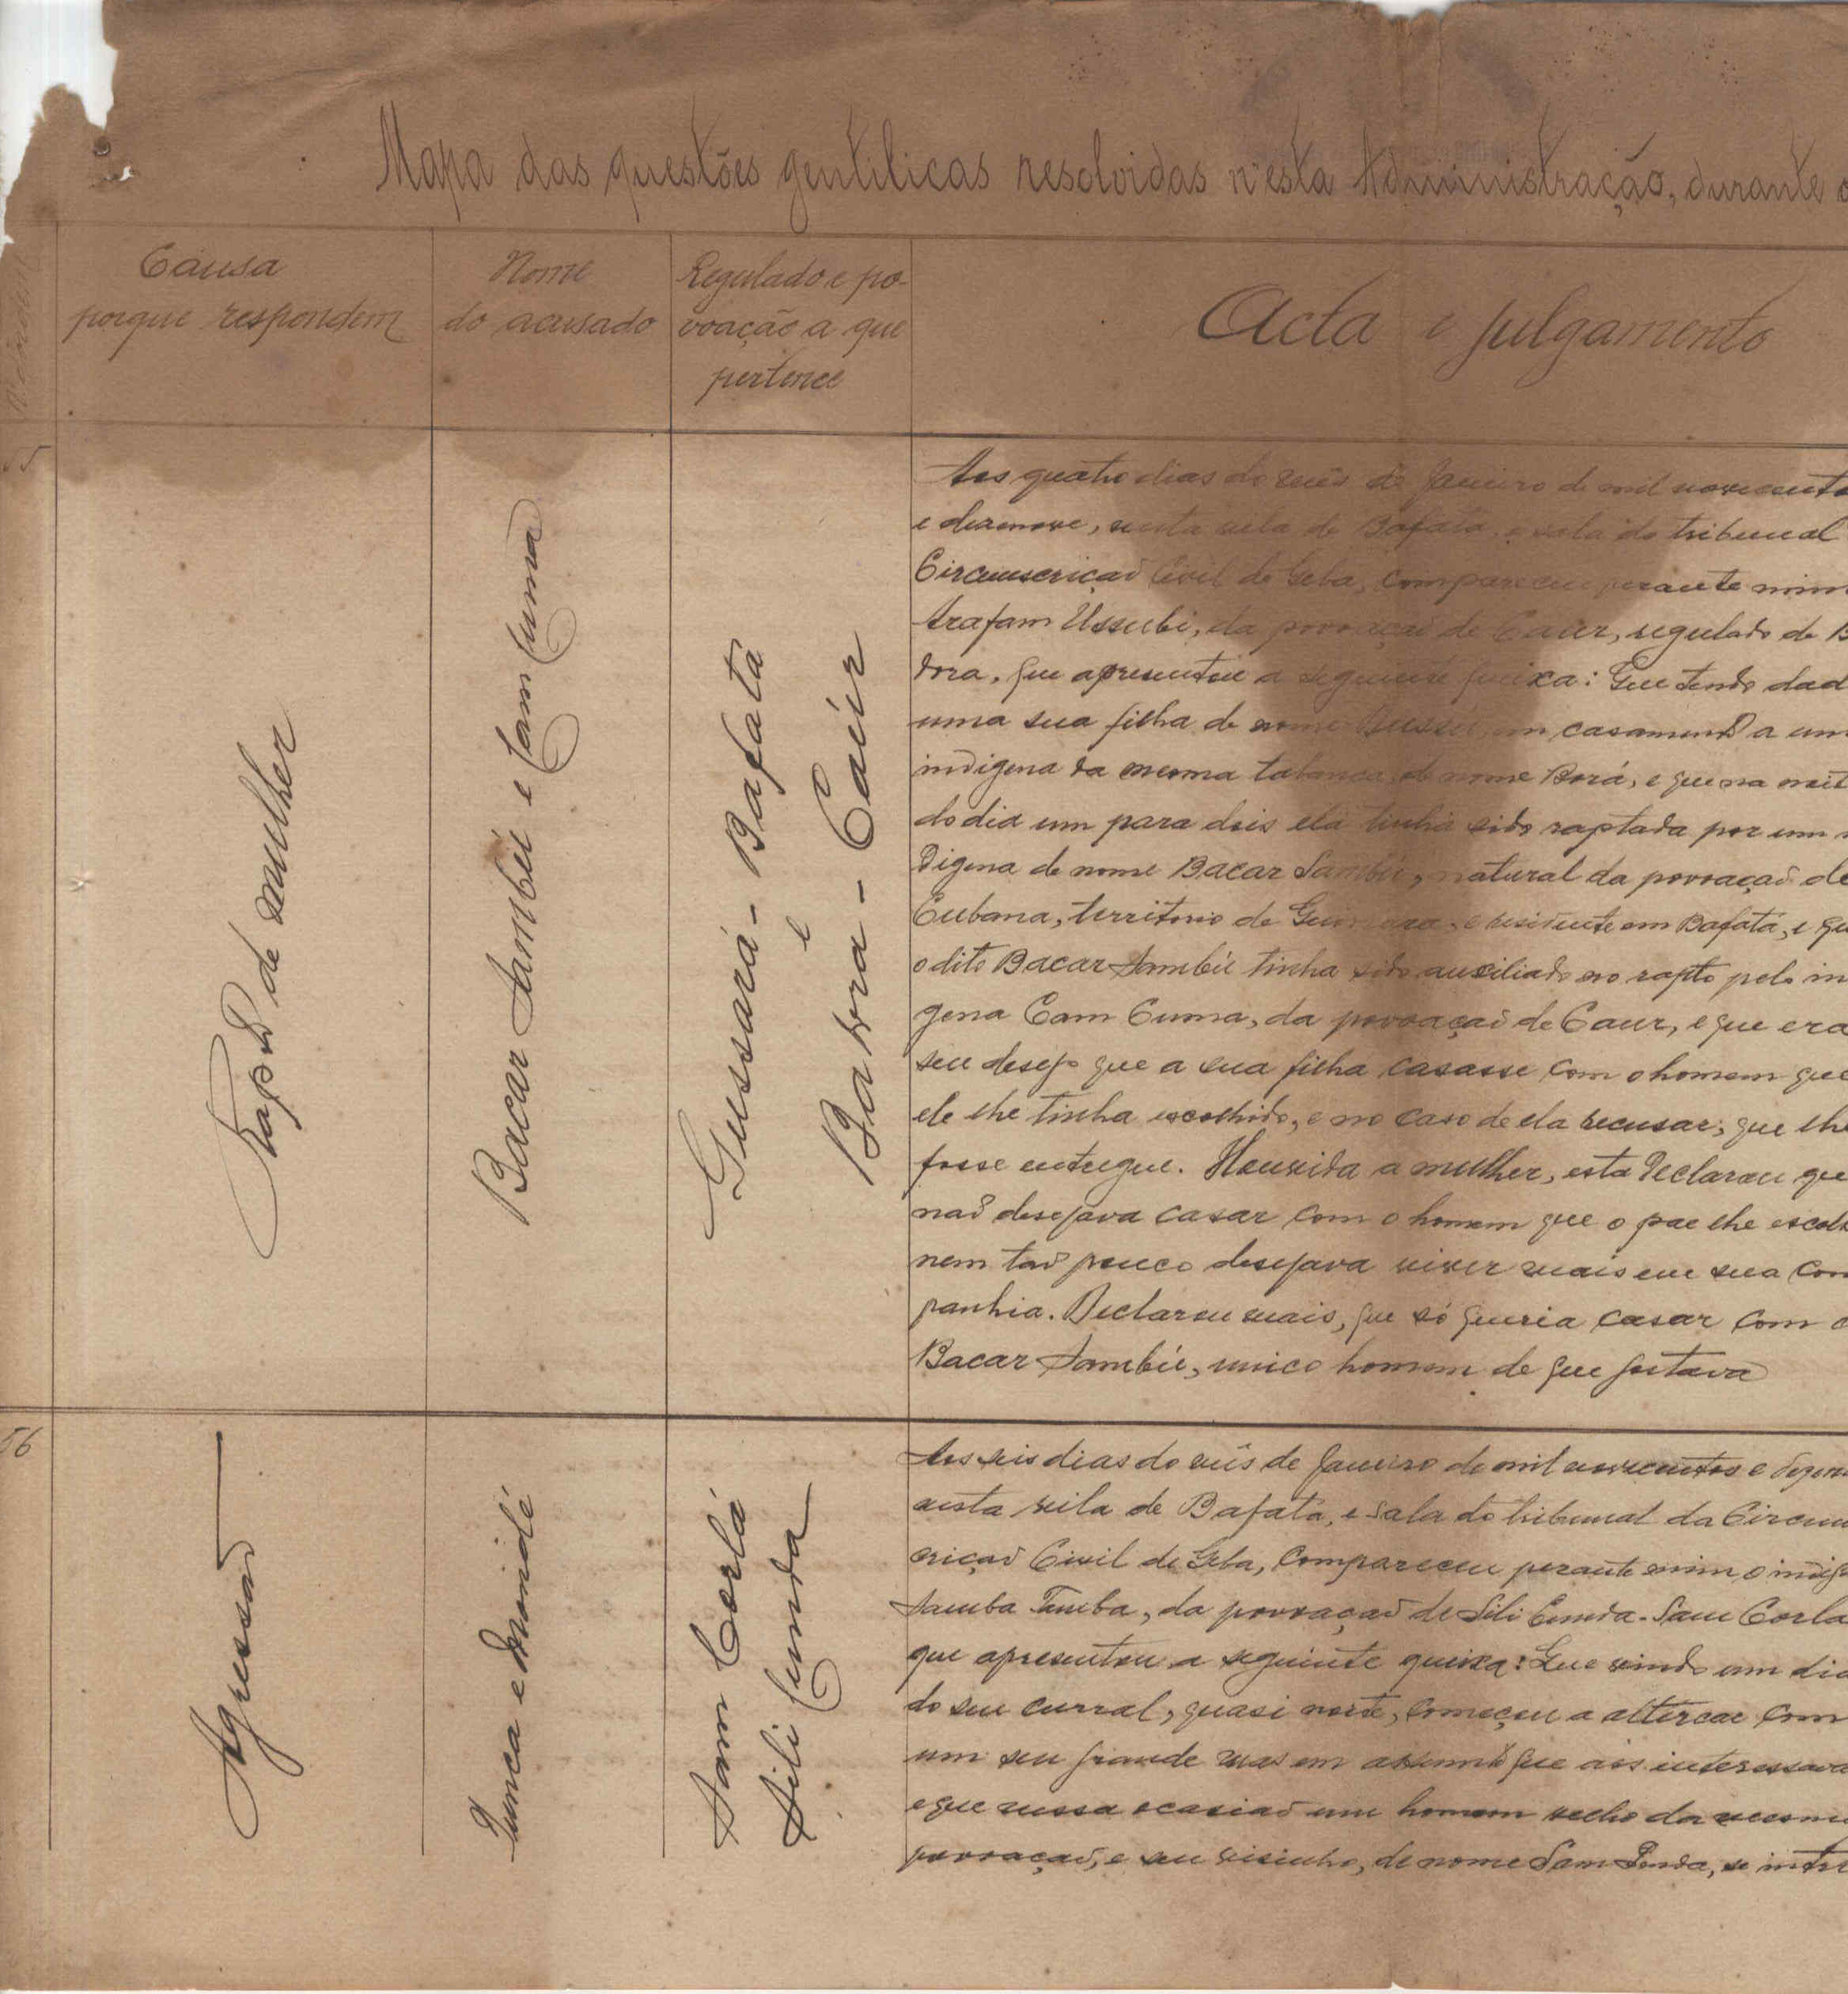 Mapa das questões gentilicas resolvidas n'esta Administração, durante o
Causa
porque respondem
Nome
do acusado
Regulado e po-
voação a que
pertence
Acta e julgamento
55
Rapto de mulher
Bacar Sambú e Cam Cuma
Gussará - Bafatá
e
Badora - Caúr
Aos quatro dias do mês de Janeiro de mil novecento
e dezenove, nesta vila de Bafatá, e sala do tribunal
Circunscriçaõ Civil de Geba, compareceu perante mim
Arafam Ussubi, da povoaçaõ de Caúr, regulado de B
dora, que apresentou a seguinte queixa: Que tendo dad
uma sua filha de nome em casamento a um
indigena da mesma tabanca, de nome Borá, e que na noit
do dia um para dois ela tinha sido raptada por um
digena de nome Bacar Sambú, natural da povoaçaõ de
Cubana, territorio de e residente em Bafatá, e qu
o dito Bacar Sambú tinha sido auxiliado no rapto pelo in
gena Cam Cuma, da povoaçaõ de Caur, e que era
seu desejo que a sua filha casasse com o homem que
ele lhe tinha escolhido, e no caso de ela recusar, que lhe
fosse entregue. Houvida a mulher, esta declarou que
naõ desejava casar com o homem que o pae lhe escolh
nem taõ pouco desejava viver mais em sua com
panhia. Declarou mais, que só queria casar com o
Bacar Sambú, unico homem de que gostava
56
Agressaõ
Junca e Mamidé
Sam Corlá
Sili Cunda
Aos seis dias do mês de Janeiro de mil novecentos e dezen
nesta vila de Bafatá, e sala do tribunal da Circun
criçaõ Civil de Geba, compareceu perante mim o indig
Samba Tamba, da povoaçaõ de Sili Cunda - Sam Corla
que apresentou a seguinte queixa: Que vindo um dia
do seu curral, quasi noite, começou a altercar com
um seu grande mas em assunto que aos interessava
e que nessa ocasiaõ um homem velho da mesma
povoaçaõ, e seu visinho, de nome Sam Penda, se intr